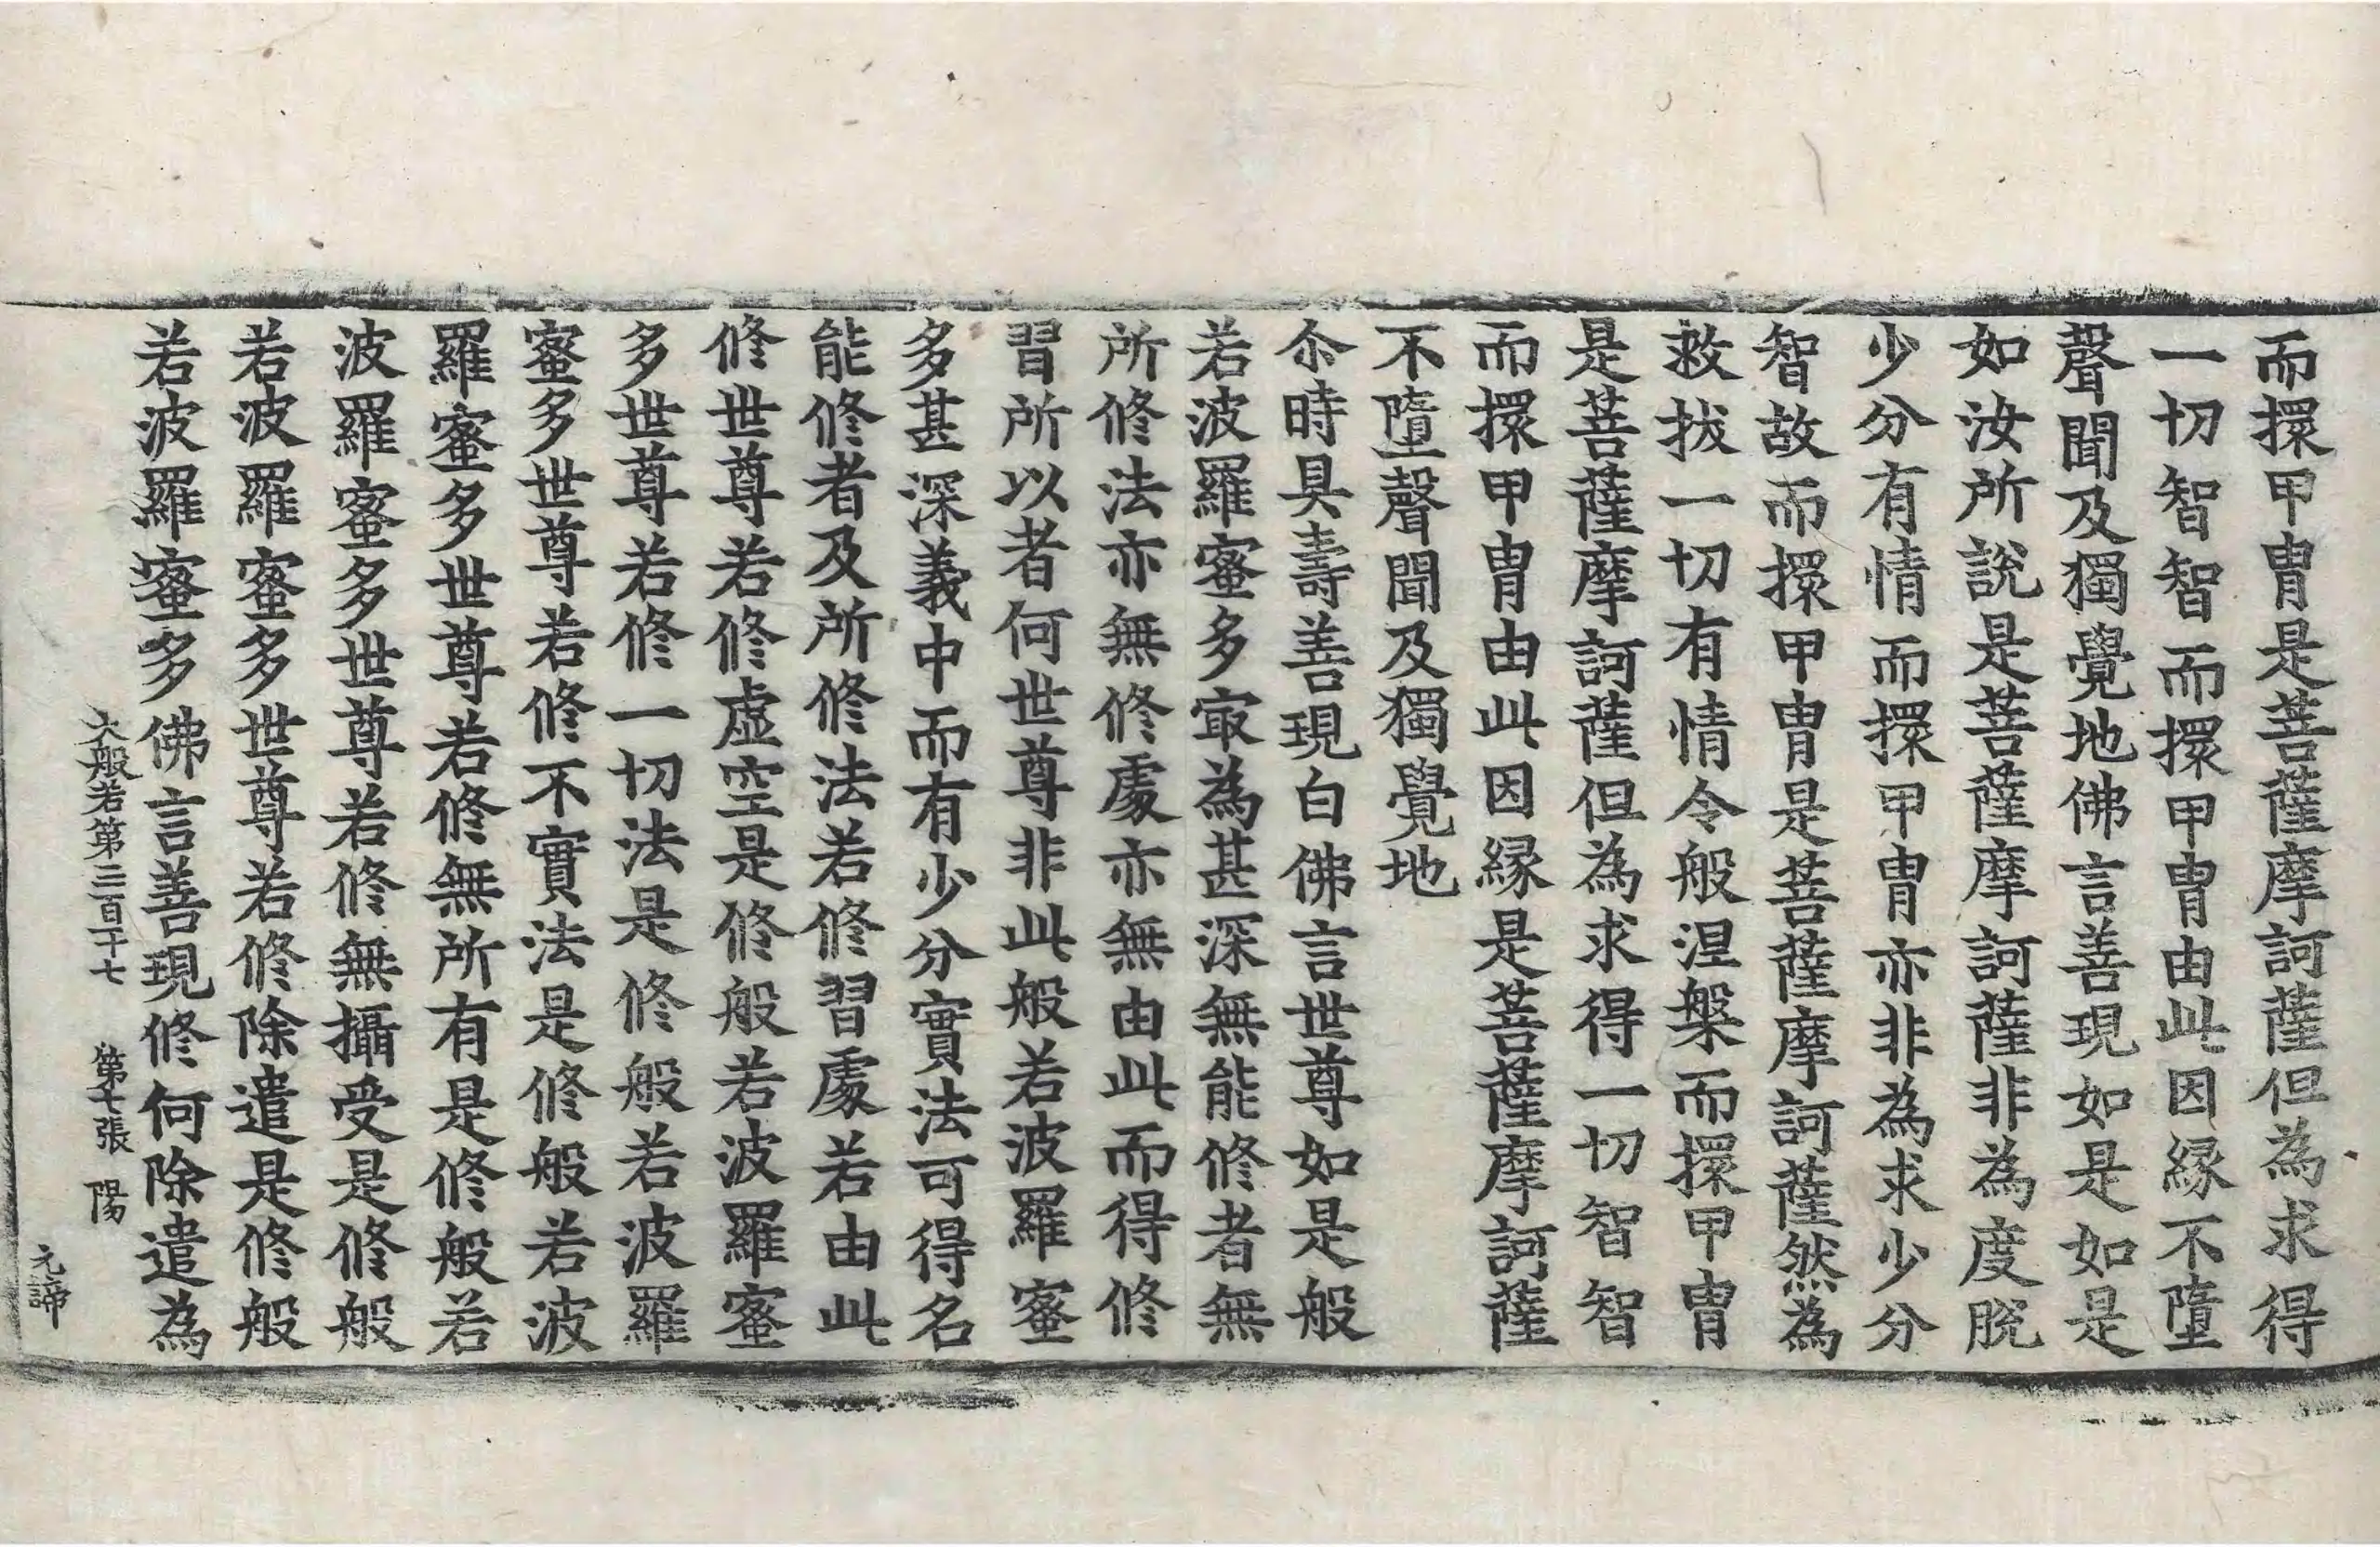 而擐甲冑是菩薩摩訶薩但為求得
一切智智而擐甲冑由此因緣不墮
聲聞及獨覺地佛言善現如是如是
如汝所說是菩薩摩訶薩非為度脫
少分有情而擐甲冑亦非為求少分
智故而擐甲冑是菩薩摩訶薩然為
救拔一切有情令般涅槃而擐甲冑
是菩薩摩訶薩但為求得一切智智
而擐甲冑由此因緣是菩薩摩訶薩
不墮聲聞及獨覺地
尒時具壽善現白佛言世尊如是般
若波羅蜜多㝡為甚深無能修者無
所修法亦無修處亦無由此而得修
習所以者何世尊非此般若波羅蜜
多甚深義中而有少分實法可得名
能修者及所修法若修習處若由此
修世尊若修虛空是修般若波羅蜜
多世尊若修一切法是修般若波羅
蜜多世尊若修不實法是修般若波
羅蜜多世尊若修無所有是修般若
波羅蜜多世尊若修無攝受是修般
若波羅蜜多世尊若修除遣是修般
若波羅蜜多佛言善現修何除遣為
大般若第三百二十七 第十張 陽
元諦